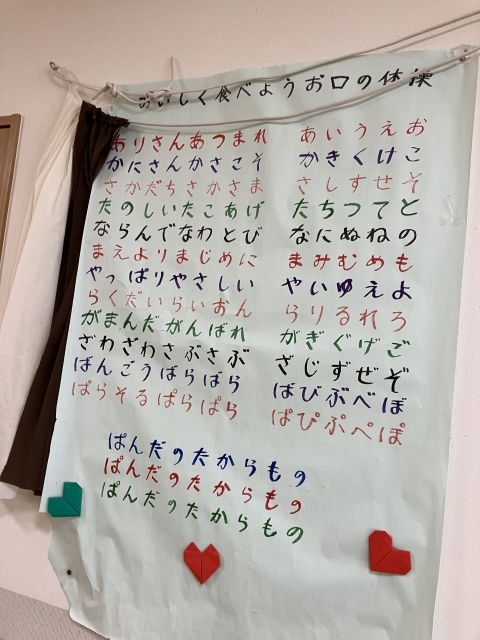 おいしく食べようお口の体操
ありさんあつまれ あいうえお
かにさんかさこそ かきくけこ
さかだちさかさま さしすせそ
たのしいたこあげ たちつてと
ならんでなわとび なにぬねの
まえよりまじめに まみむめも
やっぱりやさしい やいゆえよ
らくだいらいおん らりるれろ
がまんだがんばれ がぎぐげご
ざわざわさぶさぶ ざじずぜぞ
ばんごうばらばら ばびぶべぼ
ぱらそるぱらぱら ぱぴぷぺぽ
ぱんだのたからもの
ぱんだのたからもの
ぱんだのたからもの